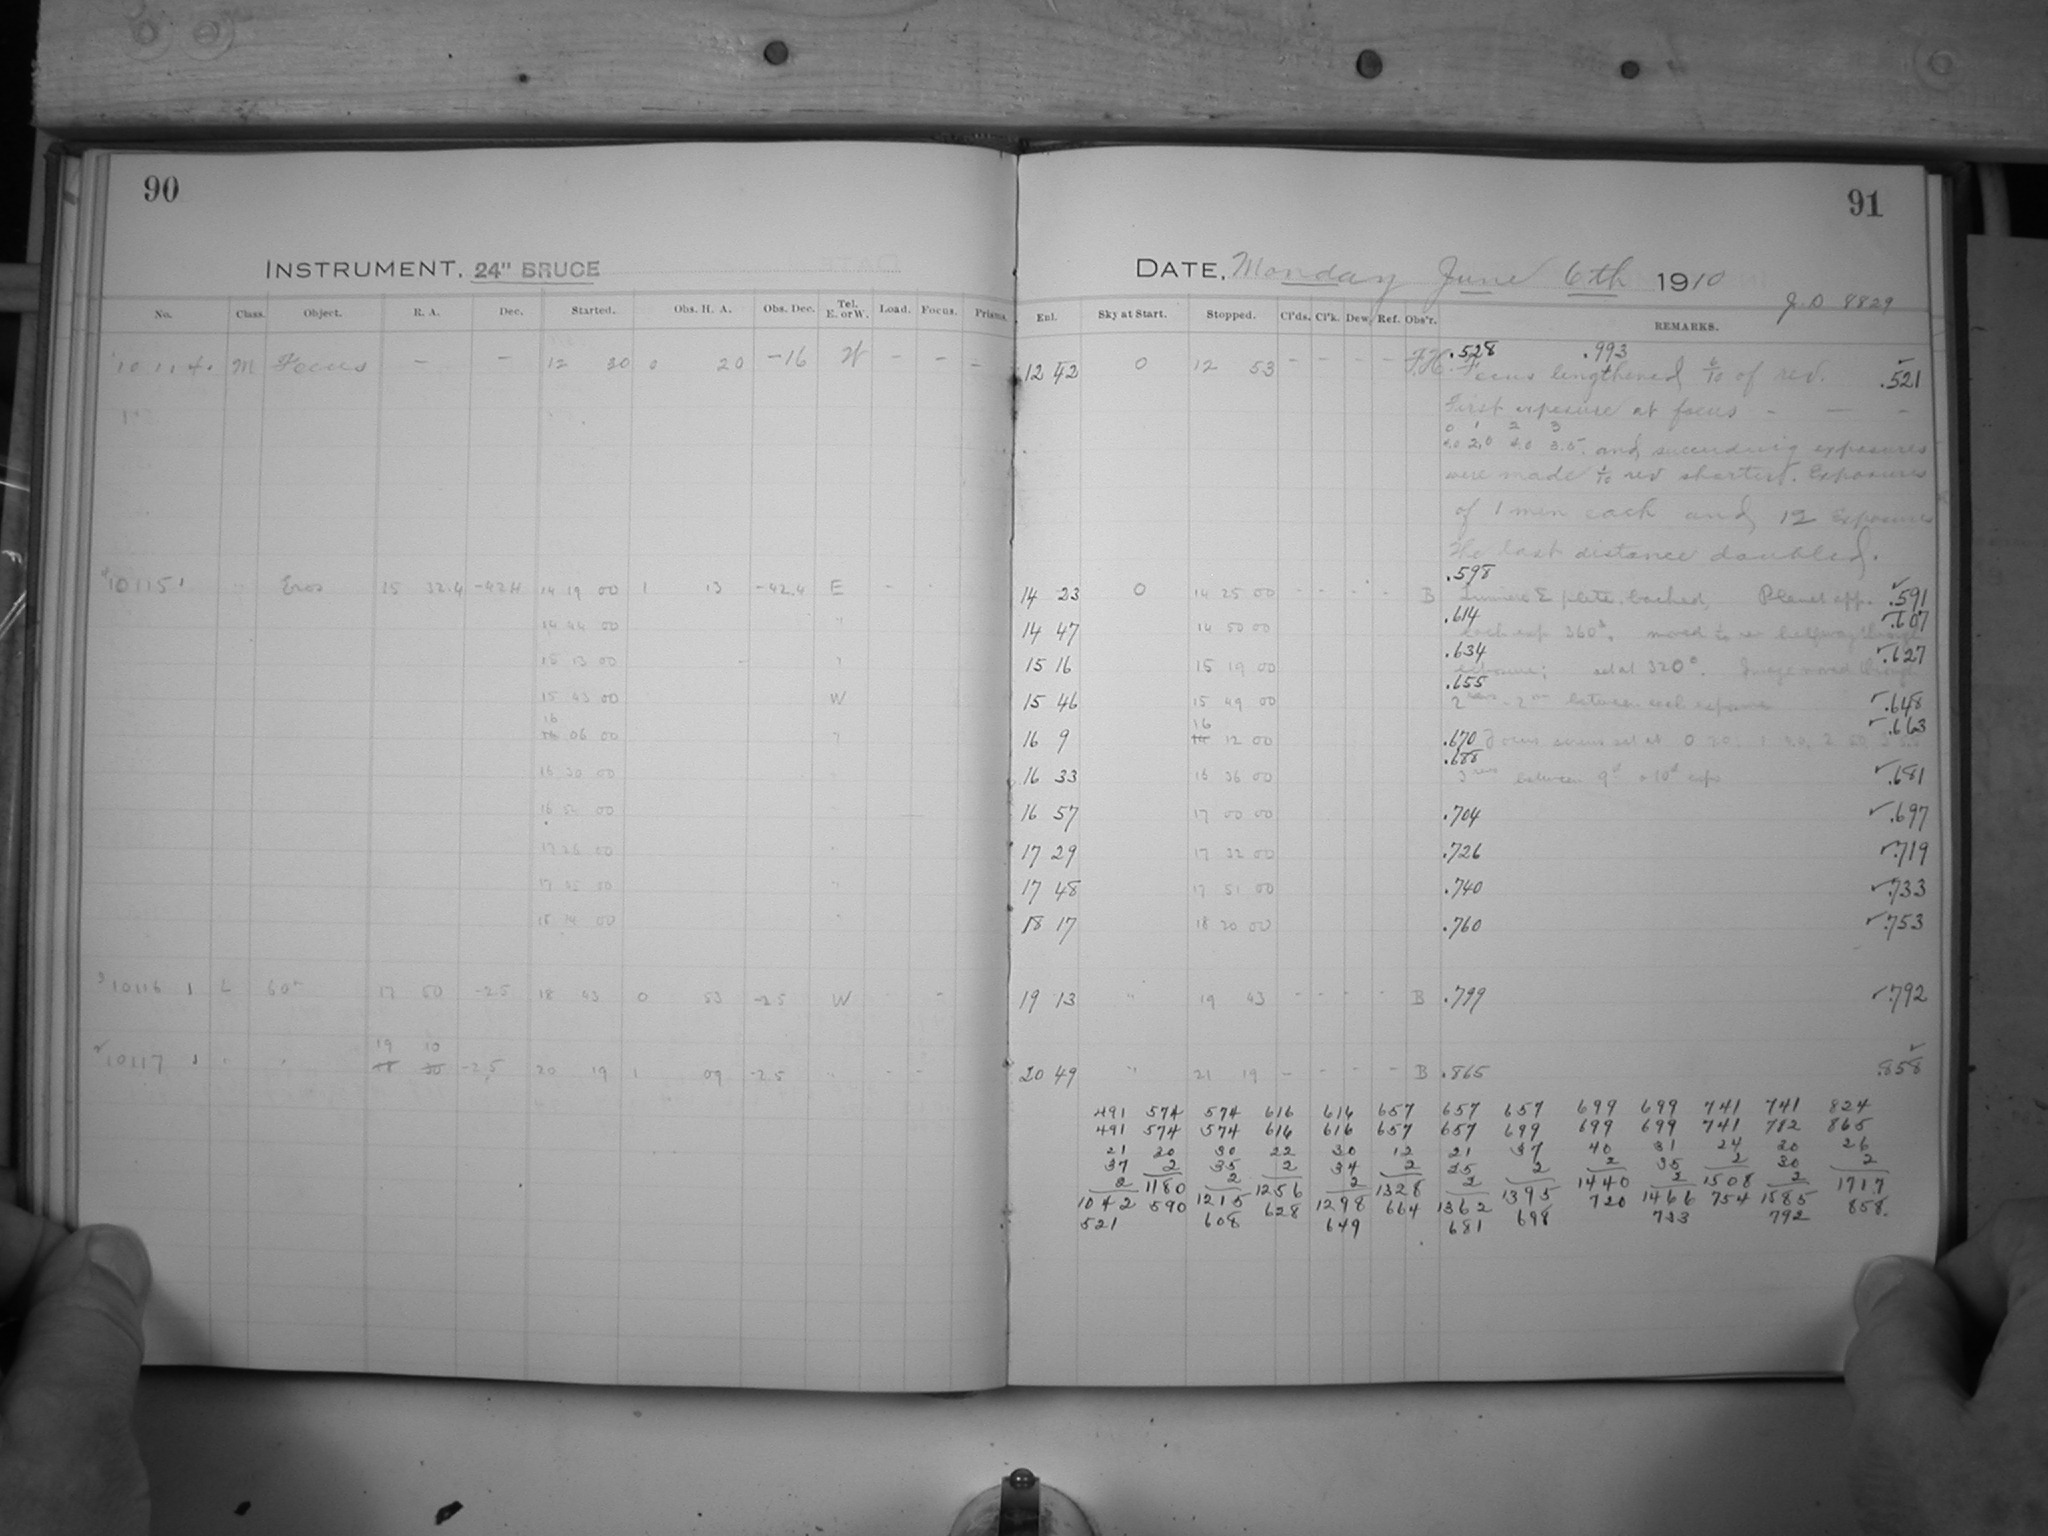 90
INSTRUMENT. 24" BRUCE
No. Class. Object. R. A. Dec. Started. Obs. H. A. Obs. Dec. Tel. E. or W. Load. Focus. Prisms.
M Focus – – 12 30 0 20 –16 W – – –
10115 " Eros 15 32.4 –42.4 14 19 00 1 13 –42.4 E -
14 44 00 "
15 13 00 "
15 43 00 W
16
06 00 "
16 30 00
16 54 00
17 26 00 "
17 45 00 "
18 14 00 "
10116 1 L 60m 17 50 –25 18 43 0 53 –25 W
19 10
10117 1 " " 18 30 –2.5 20 19 1 09 –2.5 " - -
91
DATE. Monday June 6th 1910
J.D 8829
Enl. Sky at Start. Stopped. Cl'ds. Cl'k. Dew. Ref. Obs'r. REMARKS.
.528 .993
12 42 0 12 53 – – – – F.H. Focus lengthened 6/10 of rev. .521
First exposure at focus – — –
0 1 2 3
2.0 4.0 3.5. and succeeding exposures
were made 1/10 rev shortest. Exposures
of 1 min each and 12 Exposures
The last distance doubled.
.598
14 23 0 14 25 00 - - - - B Lumiere Σ plate, backed, Planet app. .591
.614 .607
14 47 14 50 00 each exp. 360s, moved halfway through
.634 .627
15 16 15 19 00 exposure; set at 320°. Image moved through
.655
15 46 15 49 00 between each exposure .648
16 .663
16 9 12 00 .670 Focus screws set at
.688
16 33 16 36 00 3 revs between 9th & 10th exps .681
16 57 17 00 00 .704 .697
17 29 17 32 00 .726 .719
17 48 17 51 00 .740 .733
18 17 18 20 00 .760 .753
19 13 " 19 43 - - - - B .799 .792
20 49 " 21 19 – - - – B .865 .858
491 574 574 616 616 657 657 657 699 699 741 741 824
491 574 574 616 616 657 657 699 699 699 741 782 865
21 30 30 22 30 12 21 37 40 31 24 30 26
37 2 35 2 34 2 25 2 2 35 2 30 2
2 1180 2 1256 2 1328 2 1395 1440 2 1508 2 1717
1042 590 1215 628 1298 664 1362 698 720 1466 754 1585 858.
521 608 649 681 733 792